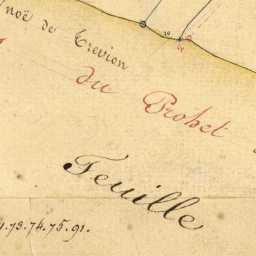 noë de Trevion
du Probet
Feuille
73.74.75.91.